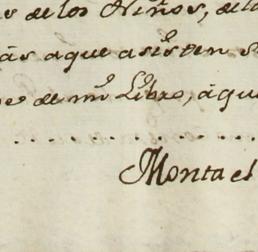 de los Niños, de l
ás aque asisten s
de mi Libro, aqu
Monta el